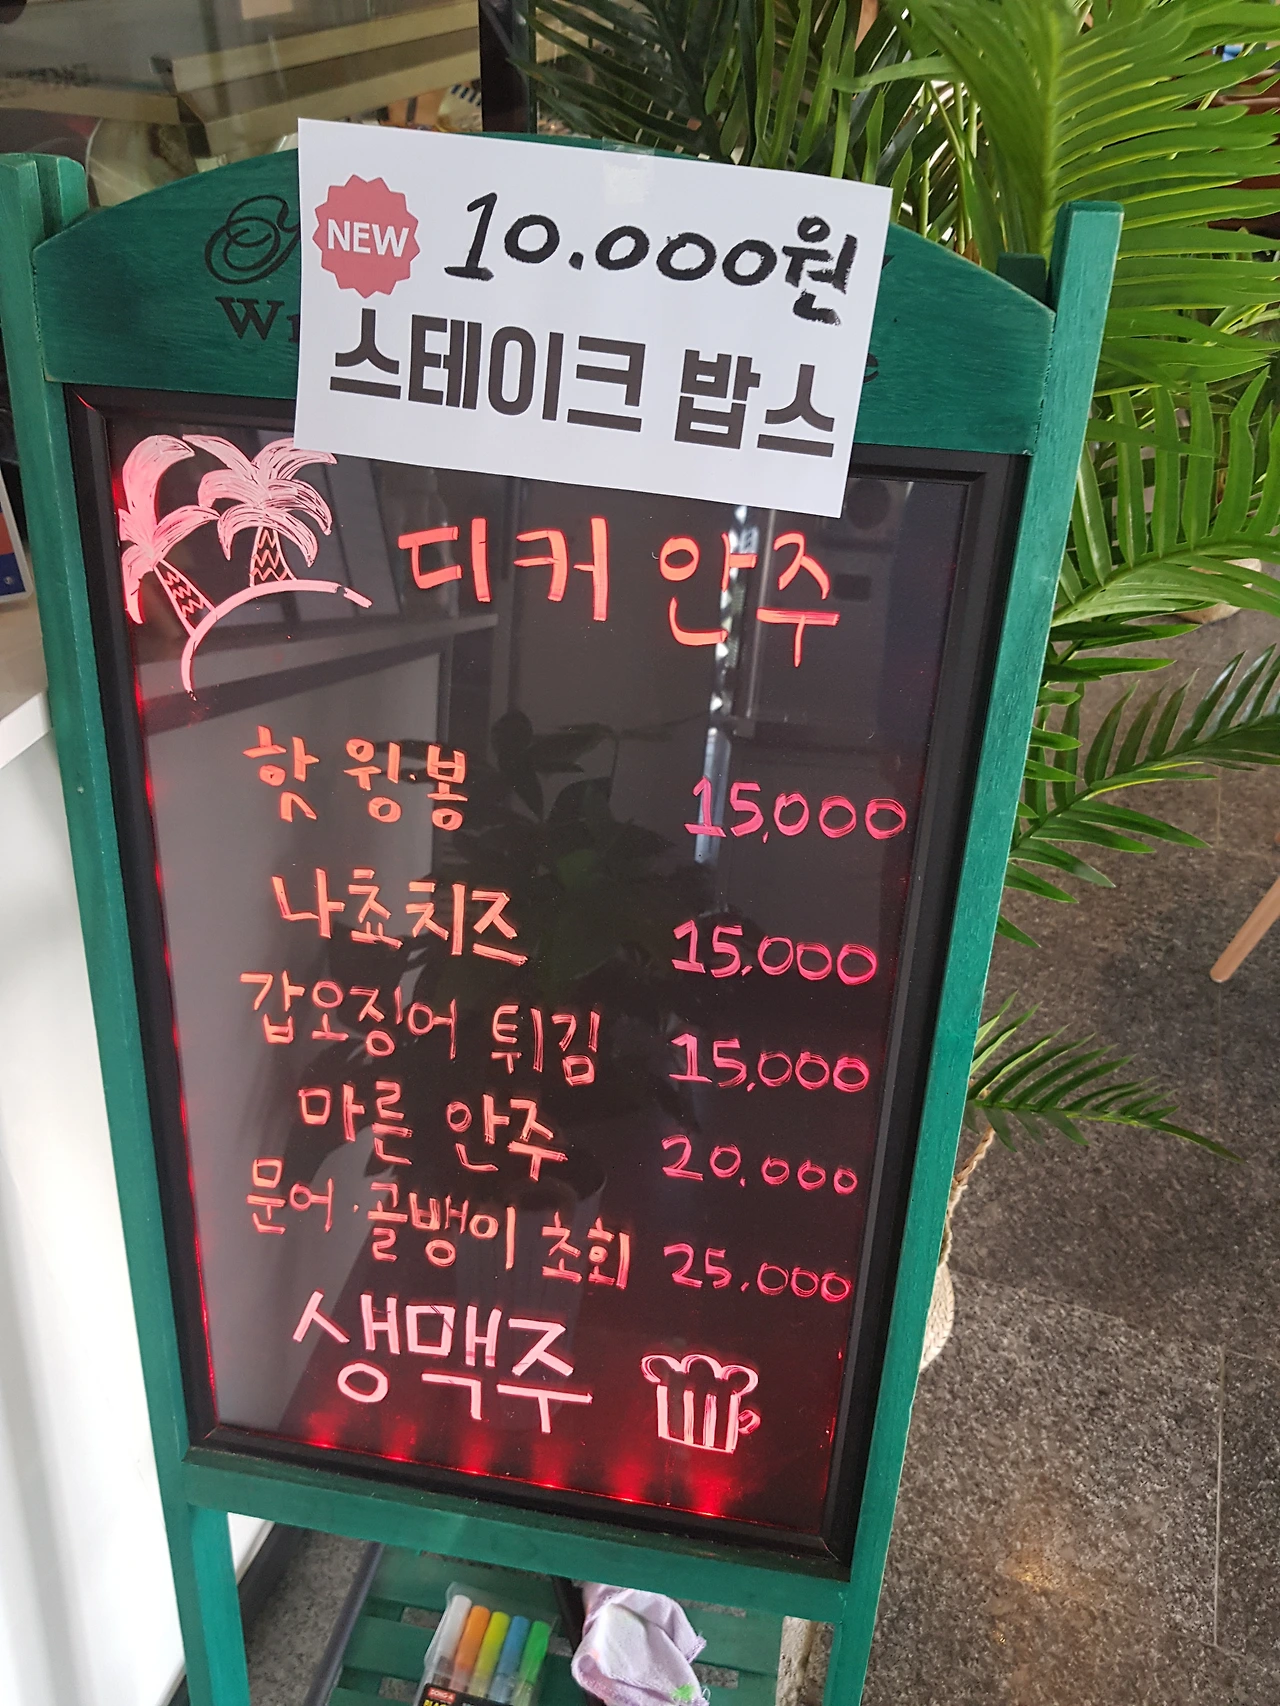 NEW 10.000원
스테이크 밥스
디커 안주
핫 윙·봉 15,000
나쵸치즈 15,000
갑오징어 튀김 15,000
마른 안주 20,000
문어·골뱅이 초회 25,000
생맥주